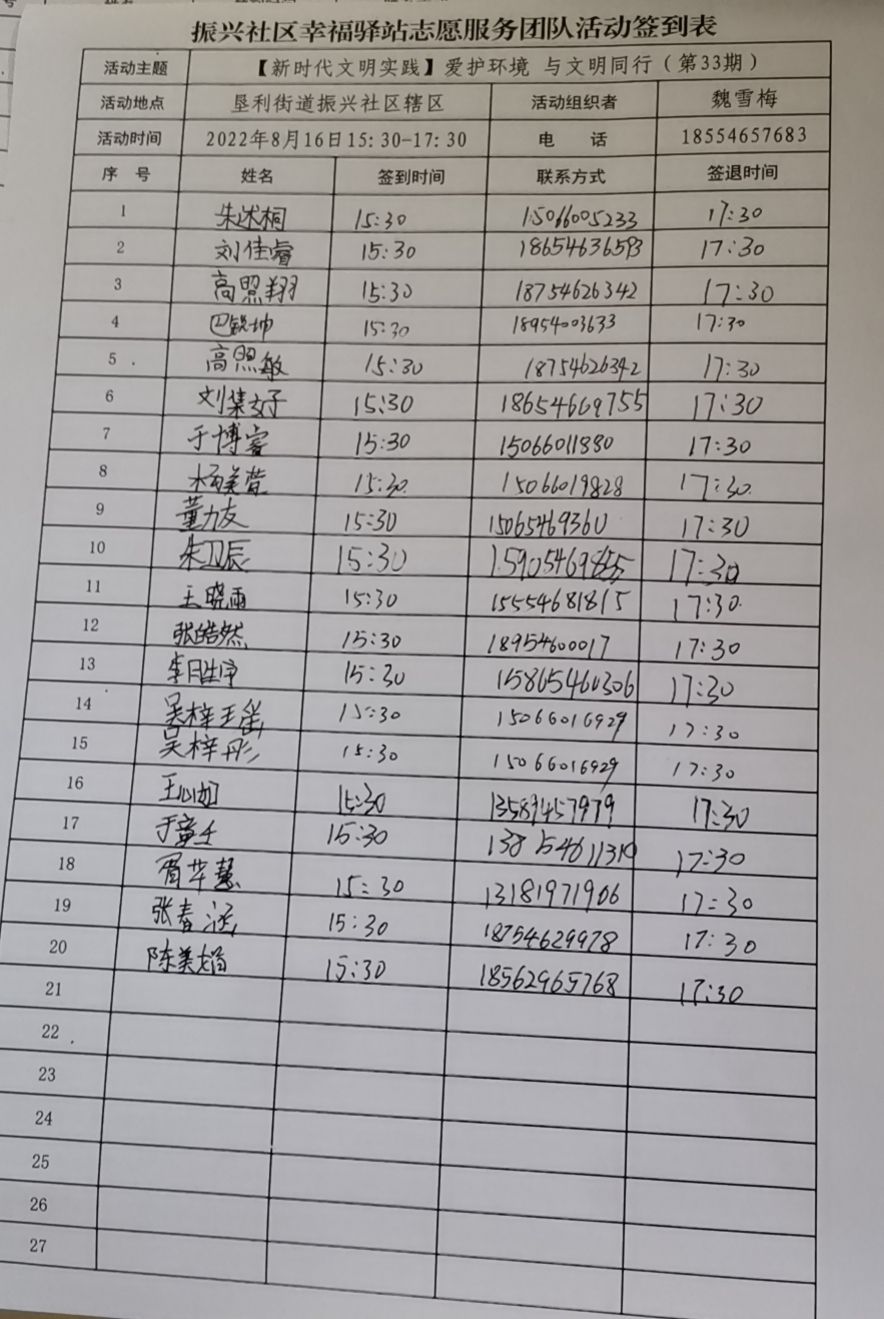 振兴社区幸福驿站志愿服务团队活动签到表
活动主题 【新时代文明实践】爱护环境 与文明同行（第33期）
活动地点 垦利街道振兴社区辖区 活动组织者 魏雪梅
活动时间 2022年8月16日15:30-17:30 电 话 18554657683
序 号 姓名 签到时间 联系方式 签退时间
1 朱述桐 15:30 15066005233 17:30
2 刘佳睿 15:30 18654636593 17:30
3 高照翔 15:30 18754626342 17:30
4 15:30 18954003633 17:30
5 高照敏 15:30 18754626342 17:30
6 15:30 18654669755 17:30
7 于博睿 15:30 15066011880 17:30
8 杨美萱 15:30 15066019828 17:30
9 董力友 15:30 15065469360 17:30
10 朱卫辰 15:30 17:30
11 王晓雨 15:30 15554681815 17:30
12 张皓然 15:30 18954600017 17:30
13 15:30 15865460306 17:30
14 吴梓瑶 15:30 15066016929 17:30
15 吴梓彤 15:30 15066016929 17:30
16 15:30 13589457979 17:30
17 15:30 17:30
18 15:30 13181971906 17:30
19 张春涵 15:30 18754629978 17:30
20 陈美娟 15:30 18562965768 17:30
21
22
23
24
25
26
27